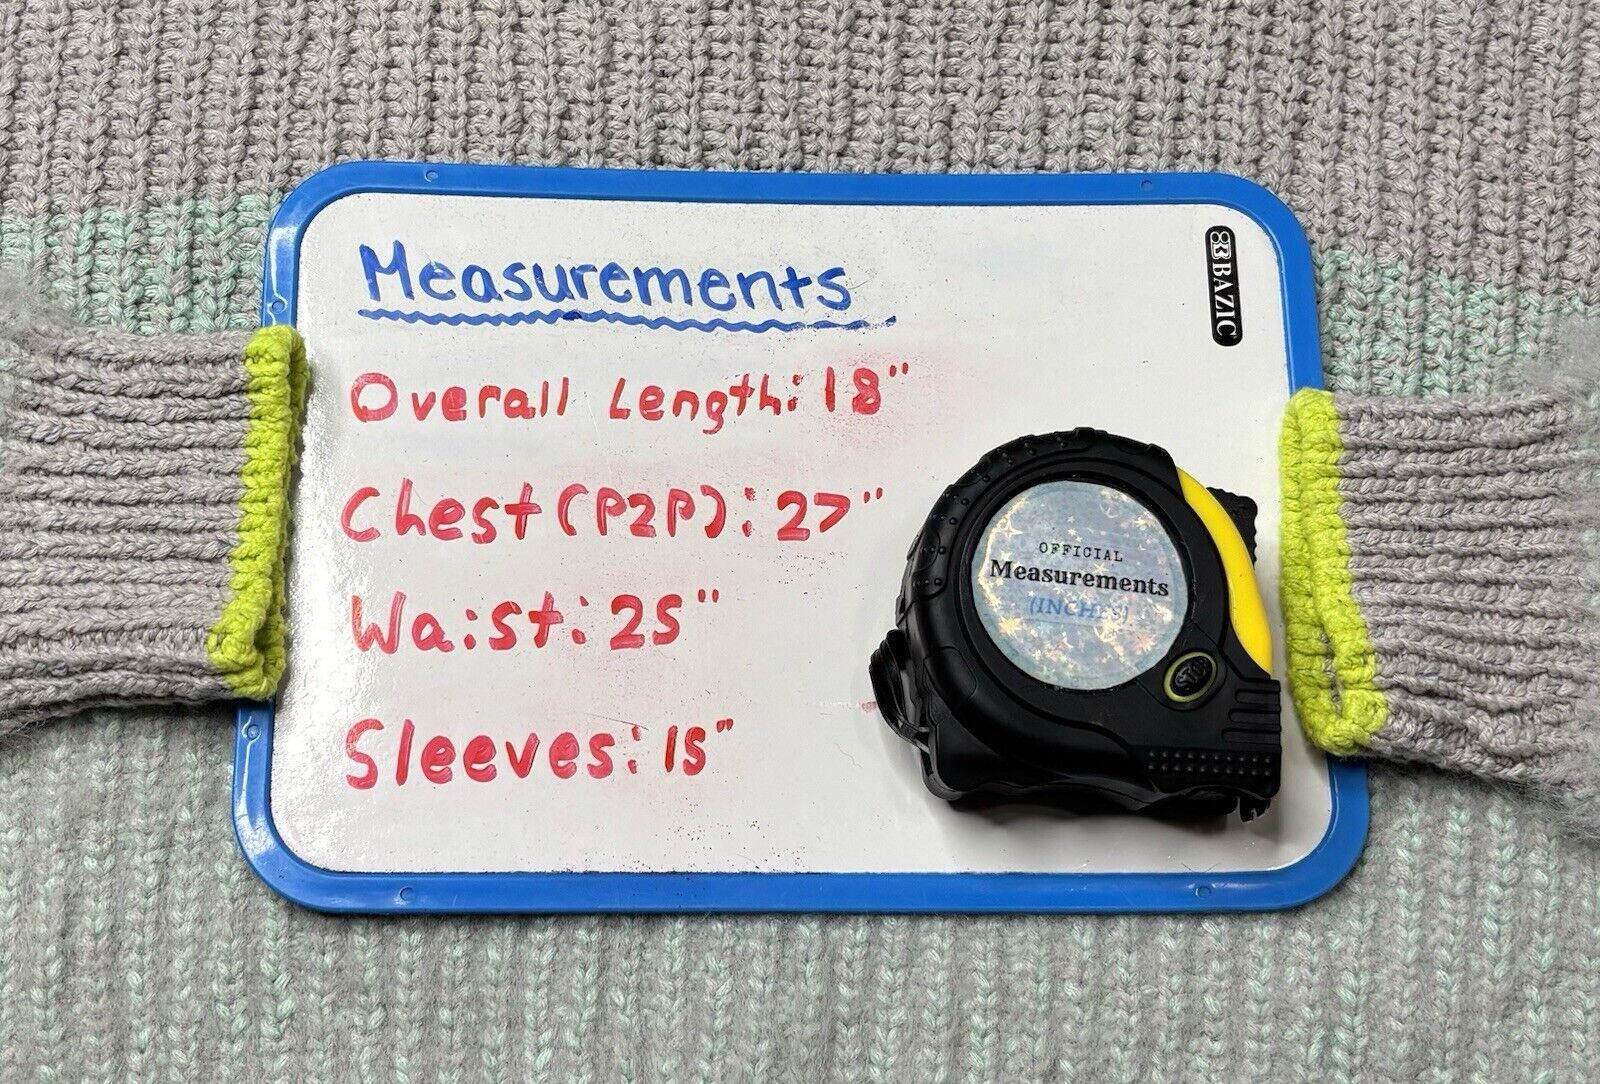 Measurements
Overall Length: 18"
Chest (P2P): 27"
Waist: 25"
Sleeves: 15"
BAZIC
OFFICIAL
Measurements
(INCHES)
STOP